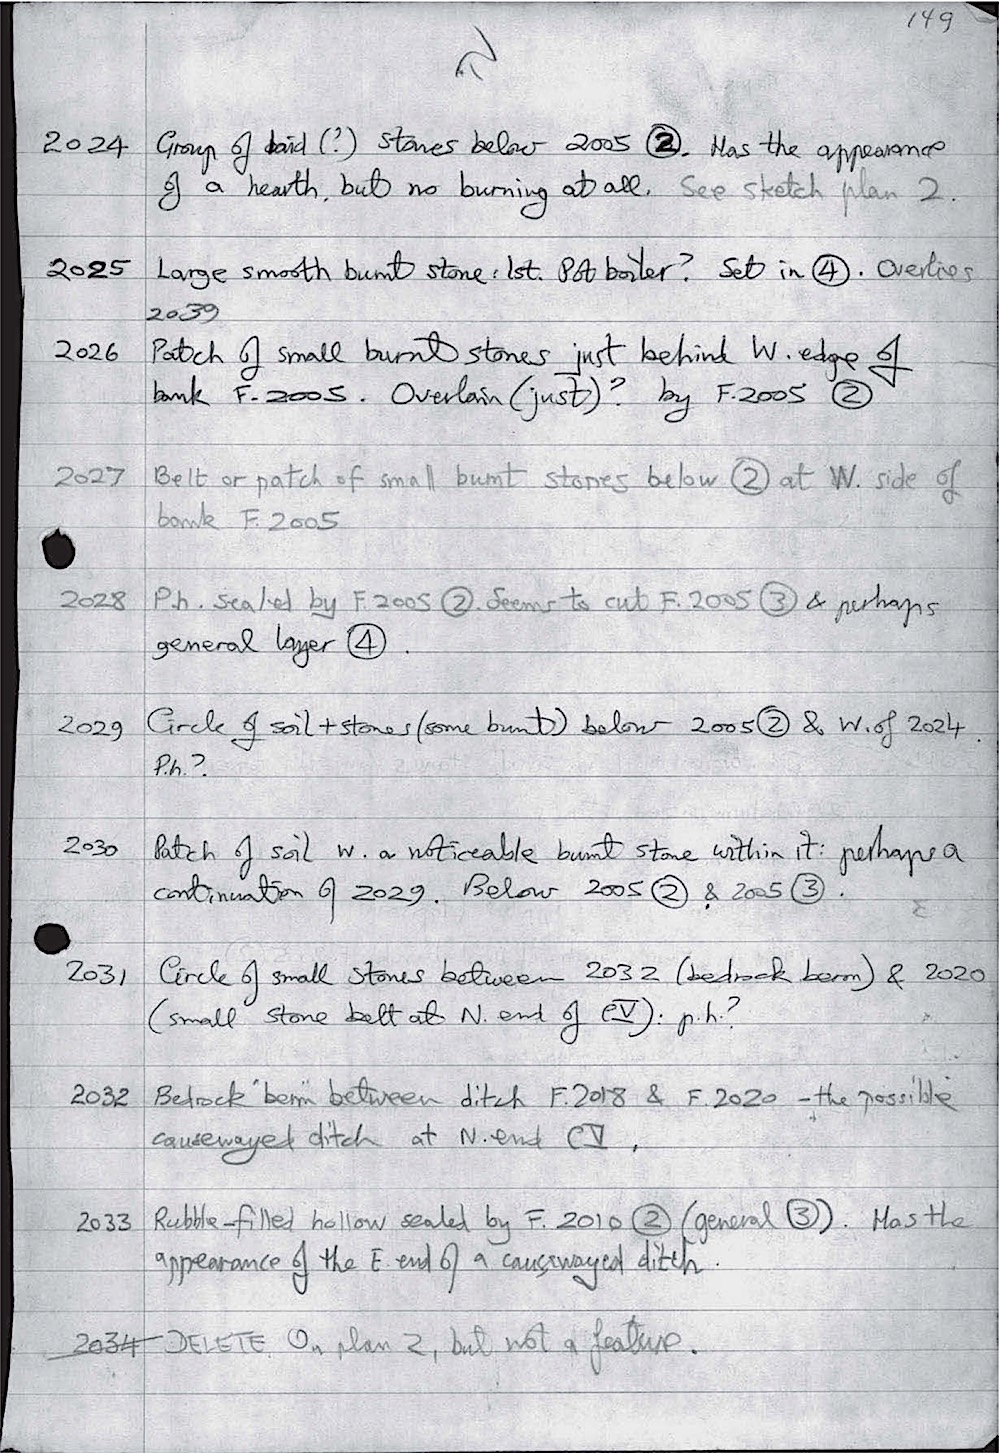 149
2024 Group of laid (?) stones below 2005 ②. Has the appearance
of a hearth, but no burning at all. See sketch plan 2.
2025 Large smooth burnt stone: lst. Pot boiler? Set in ④. Overlies
2039
2026 Patch of small burnt stones just behind W. edge of
bank F. 2005. Overlain (just)? by F.2005 ②
2027 Belt or patch of small burnt stones below ② at W. side of
bank F. 2005
2028 P.h. sealed by F.2005 ②. Seems to cut F.2005 ③ & perhaps
general layer ④.
2029 Circle of soil + stones (some burnt) below 2005 ② & W. of 2024.
P.h.?
2030 Patch of soil w. a noticeable burnt stone within it: perhaps a
continuation of 2029. Below 2005 ② & 2005 ③.
2031 Circle of small stones between 2032 (bedrock berm) & 2020
(small stone belt at N. end of CV): p.h.?
2032 Bedrock "berm" between ditch F.2018 & F.2020 - the possible
causewayed ditch at N. end CV.
2033 Rubble-filled hollow sealed by F. 2010 ② (general ③). Has the
appearance of the E. end of a causewayed ditch.
2034 DELETE. On plan 2, but not a feature.